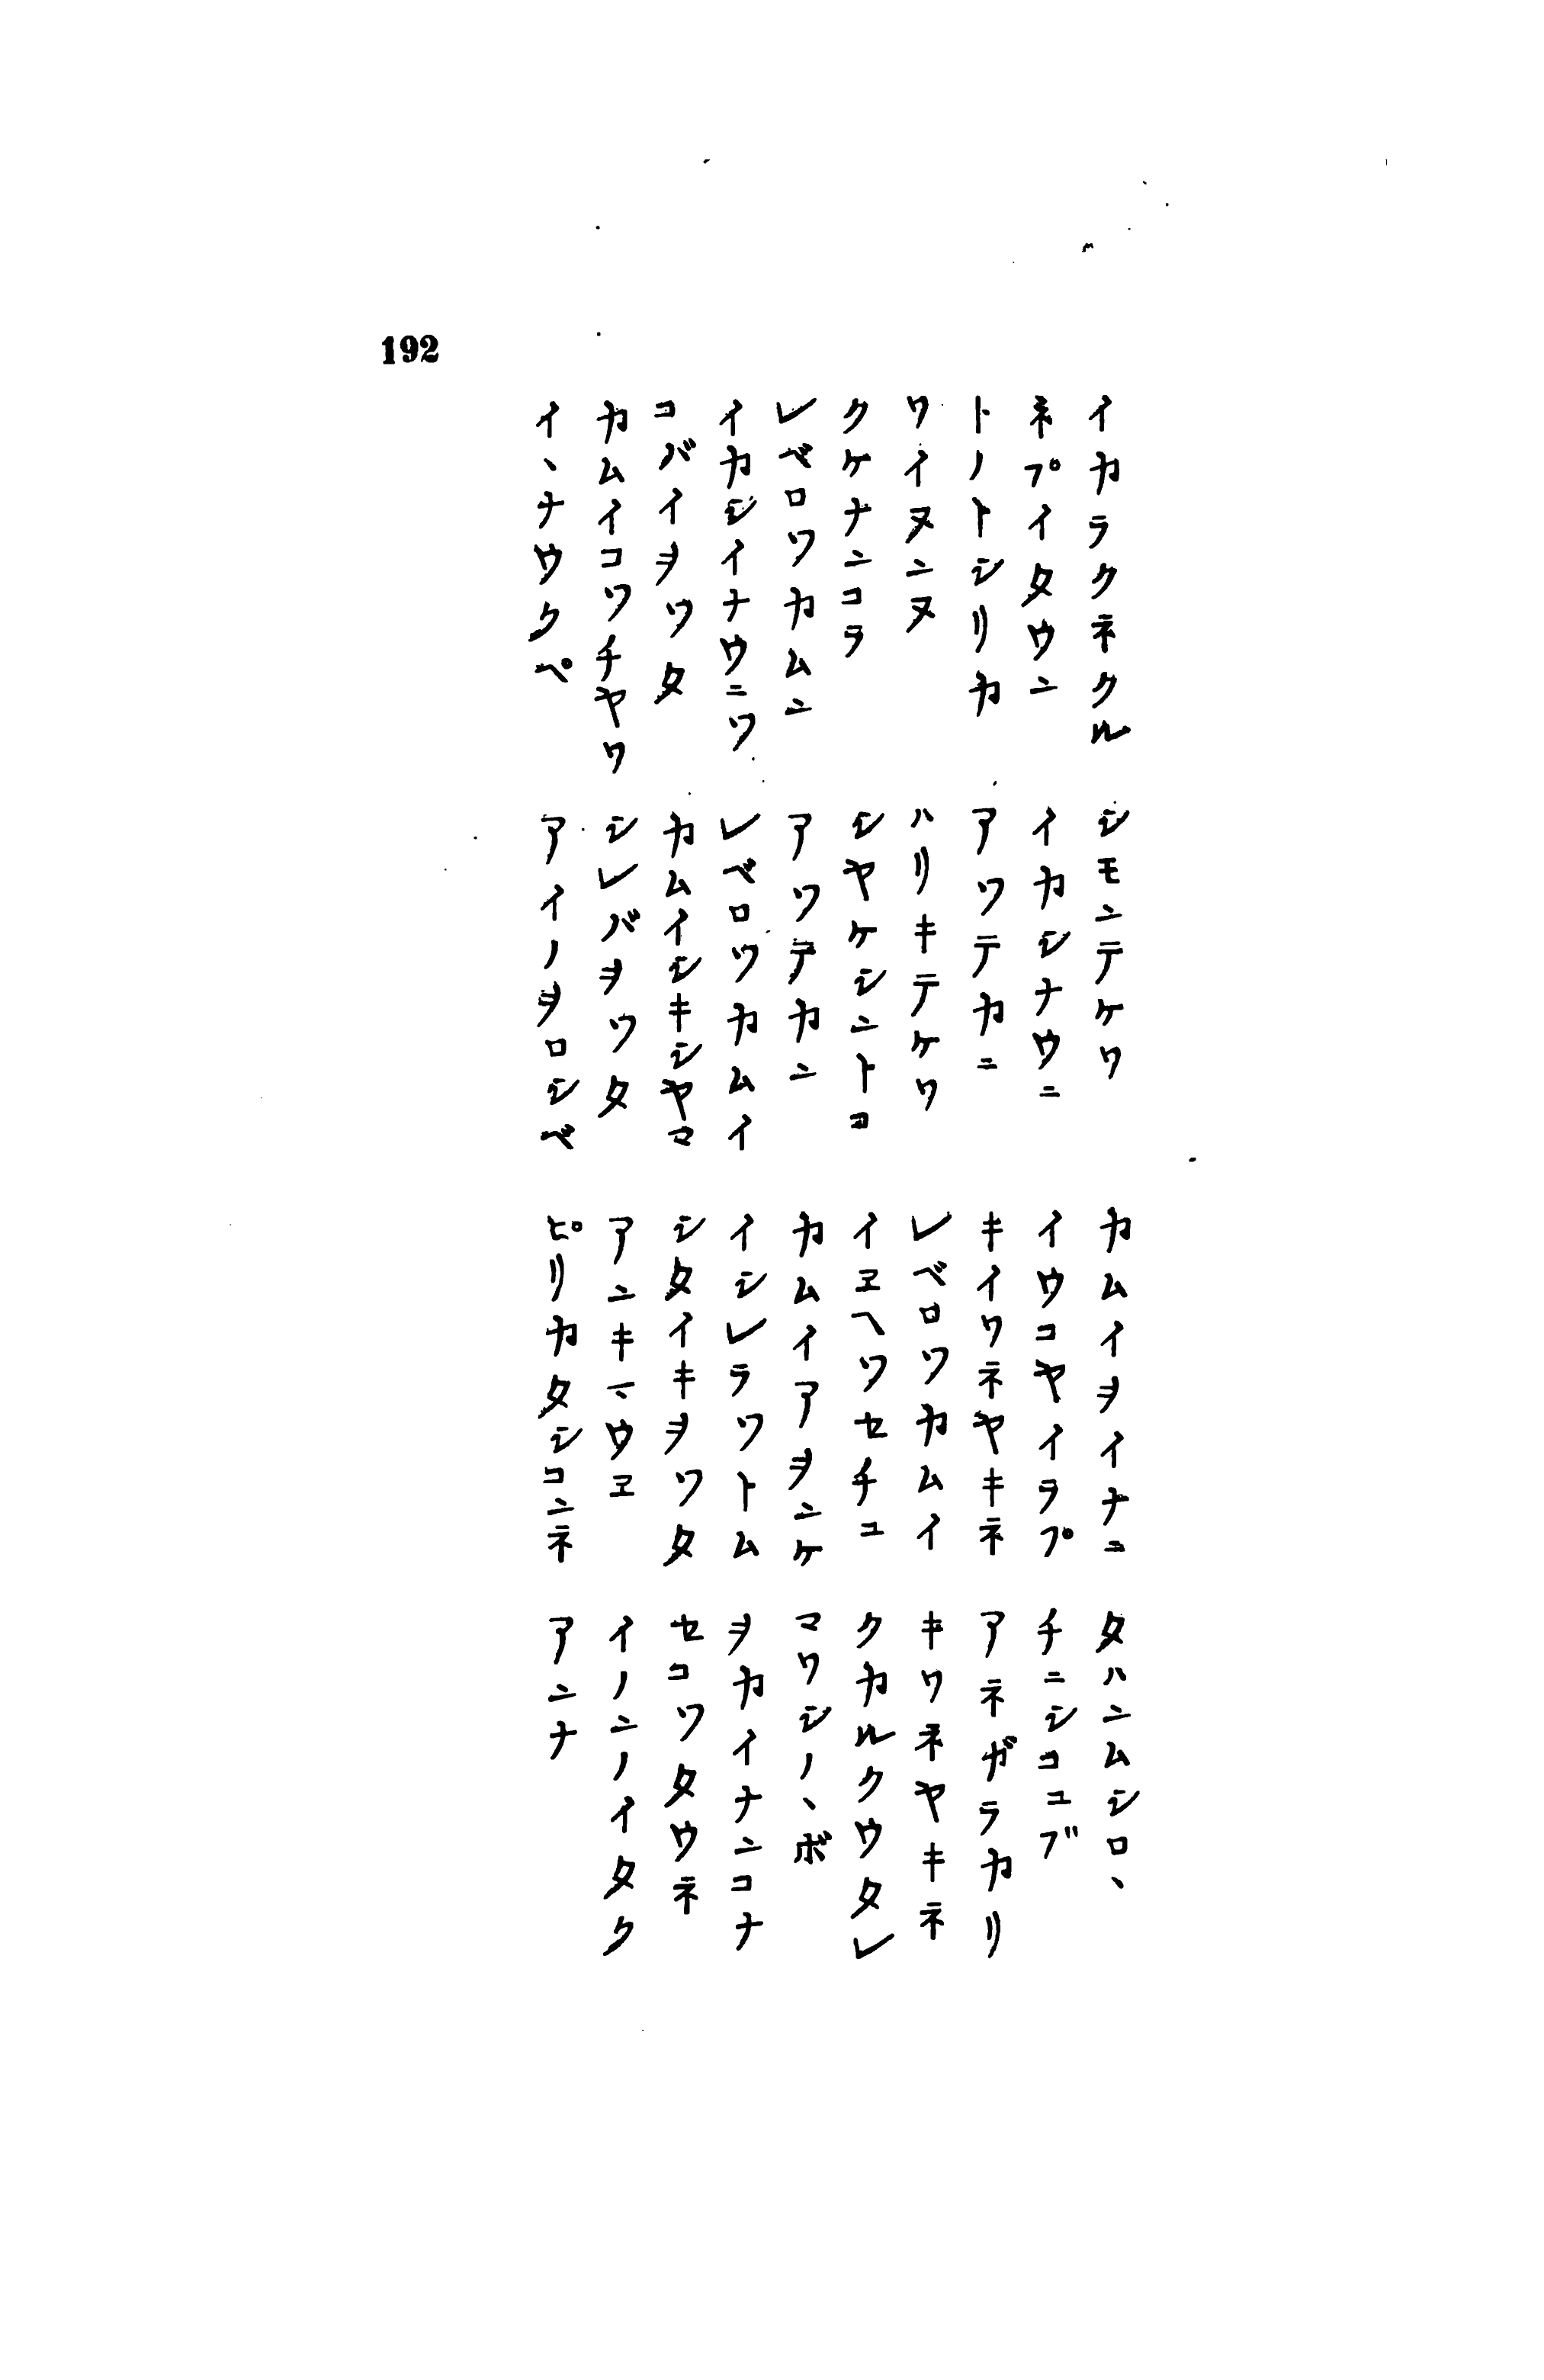 192
イカラクネクル
ネプイタウン
トノトシリカ
ワイヌンヌ
クケナンコラ
レベロワカムン
イカシイナウニワ
コバイヲワタ
カムイコワチヤワ
イヽナウクペ
シモンテケワ
イカシナウニ
アワテカニ
ハリキテケワ
シヤケシントコ
アワテカン
レベロワカムイ
カムイシキシヤマ
シレバヲワタ
アイノヲロシベ
カムイヲイナニ
イウコヤイラプ
キイワネヤキネ
レベロワカムイ
イヱヘワセチユ
カムイアヲンケ
イシレラワトム
シタイキヲワタ
アンキマウヱ
ピリカタシコンネ
タハンムシロヽ
チニシコユブ
アネガラカリ
キワネヤキネ
クカルクウタレ
マワシノヽボ
ヲカイナンコナ
セコワタウネ
イノンノイタク
アンナ